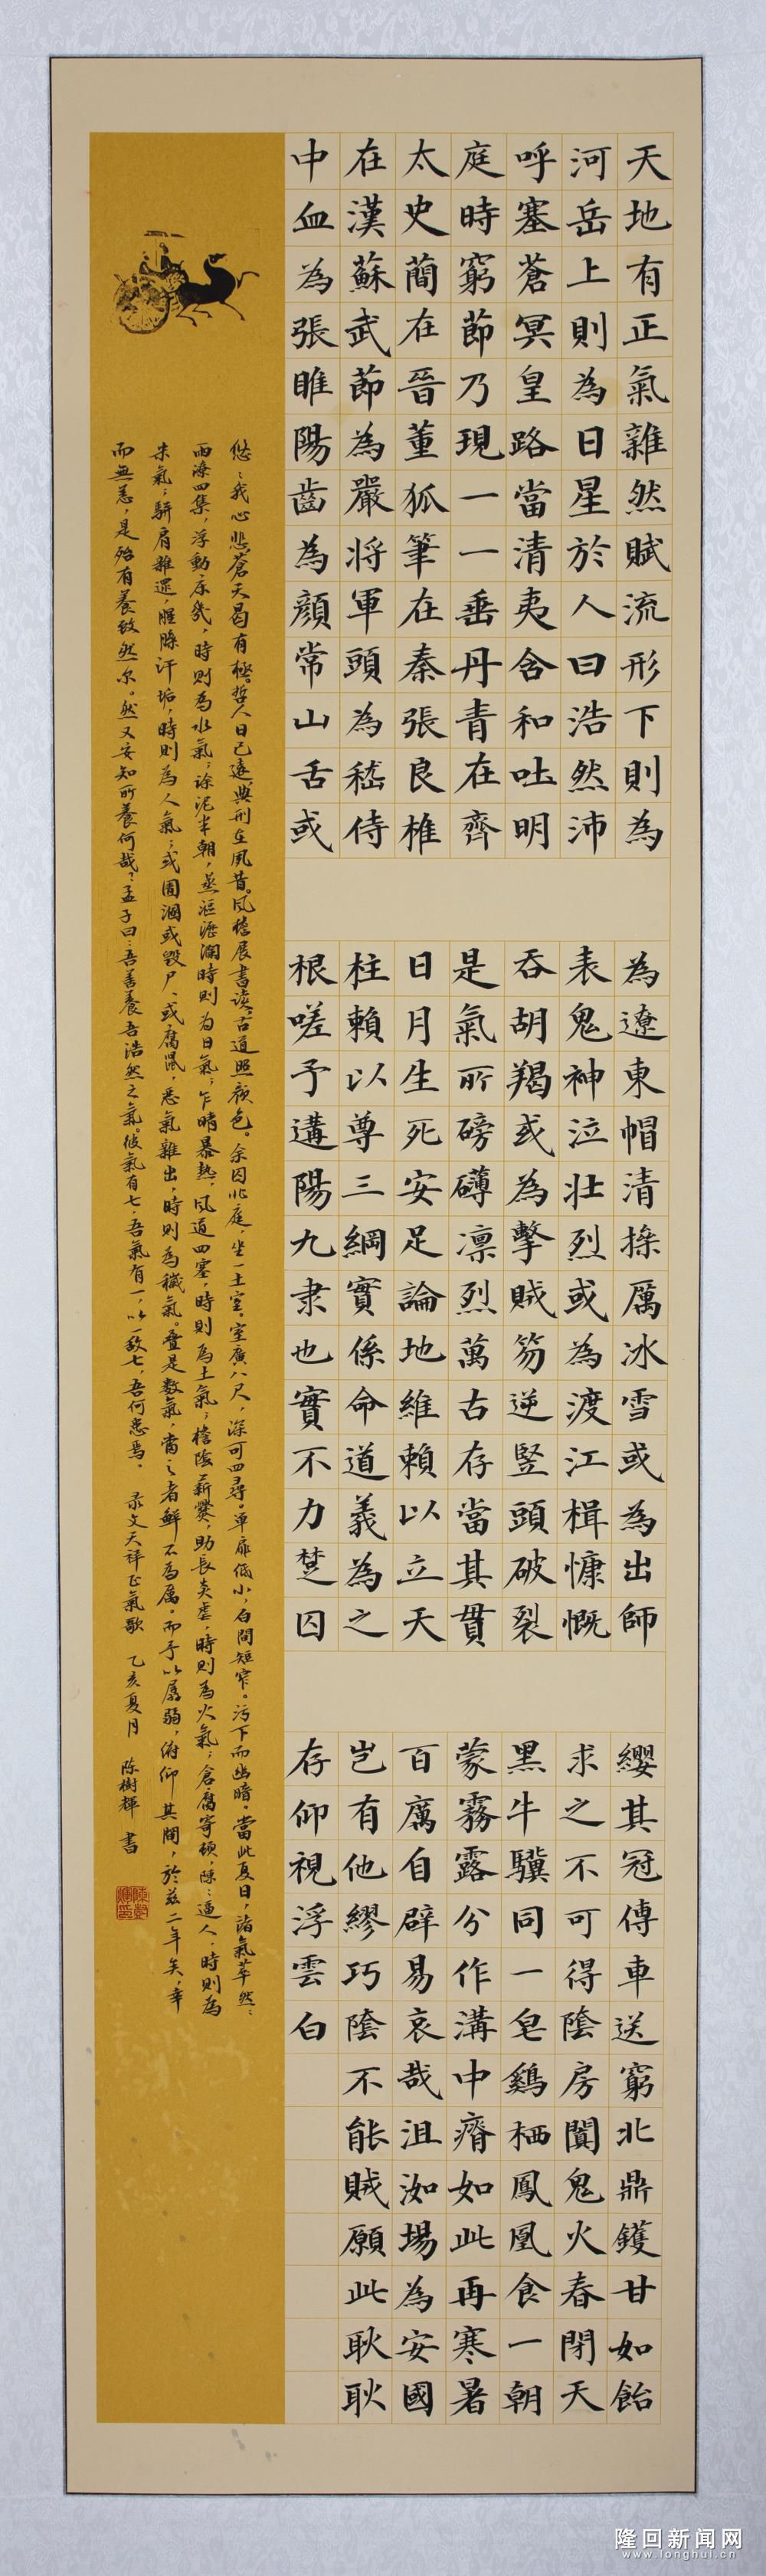 天地有正氣雜然賦流形下則為
河岳上則為日星於人曰浩然沛
呼塞蒼冥皇路當清夷含和吐明
庭時窮節乃現一一垂丹青在齊
太史蕳在晉董狐筆在秦張良椎
在漢蘇武節為嚴将軍頭為嵇侍
中血為張睢陽齒為顏常山舌或
為遼東帽清操厲冰雪或為出師
表鬼神泣壯烈或為渡江楫慷慨
吞胡羯或為擊賊笏逆豎頭破裂
是氣所磅礴凛烈萬古存當其貫
日月生死安足論地維賴以立天
柱賴以尊三綱實係命道義為之
根嗟予遘陽九隶也實不力楚囚
纓其冠傳車送窮北鼎鑊甘如飴
求之不可得陰房闃鬼火春閉天
黑牛驥同一皂鷄栖鳳凰食一朝
蒙霧露分作溝中瘠如此再寒暑
百厲自辟易哀哉沮洳場為安國
豈有他繆巧陰不能賊願此耿耿
存仰視浮雲白
悠:我心悲,蒼天曷有極。哲人日已遠,典刑在夙昔。风檐展書读,古道照顏色。余囚北庭,坐一土室。室廣八尺,深可四尋。單扉低小,白間短窄。污下而幽暗。當此夏日,諸氣萃然:
雨潦四集,浮動床幾,時則為水氣;涂泥半朝,蒸漚瀝瀾,時則為日氣;乍晴暴熱,风道四塞,時則為土氣;檐陰薪爨,助長炎虐,時則為火氣;倉腐寄頓,陳:逼人,時則為
米氣;駢肩雜遝,腥臊汗垢,時則為人氣;或圊溷或毀尸、或腐鼠,惡氣雜出,時則為穢氣。疊是数氣,當之者鮮不為厲。而予以孱弱,俯仰其間,於茲二年矣,幸
而無恙,是殆有養致然尔。然又安知所養何哉?孟子曰:吾善養吾浩然之氣。彼氣有七,吾氣有一,以一敌七,吾何患焉。 录文天祥正氣歌 乙亥夏月 陈樹輝 書
隆回新闻网
www.longhui.cn